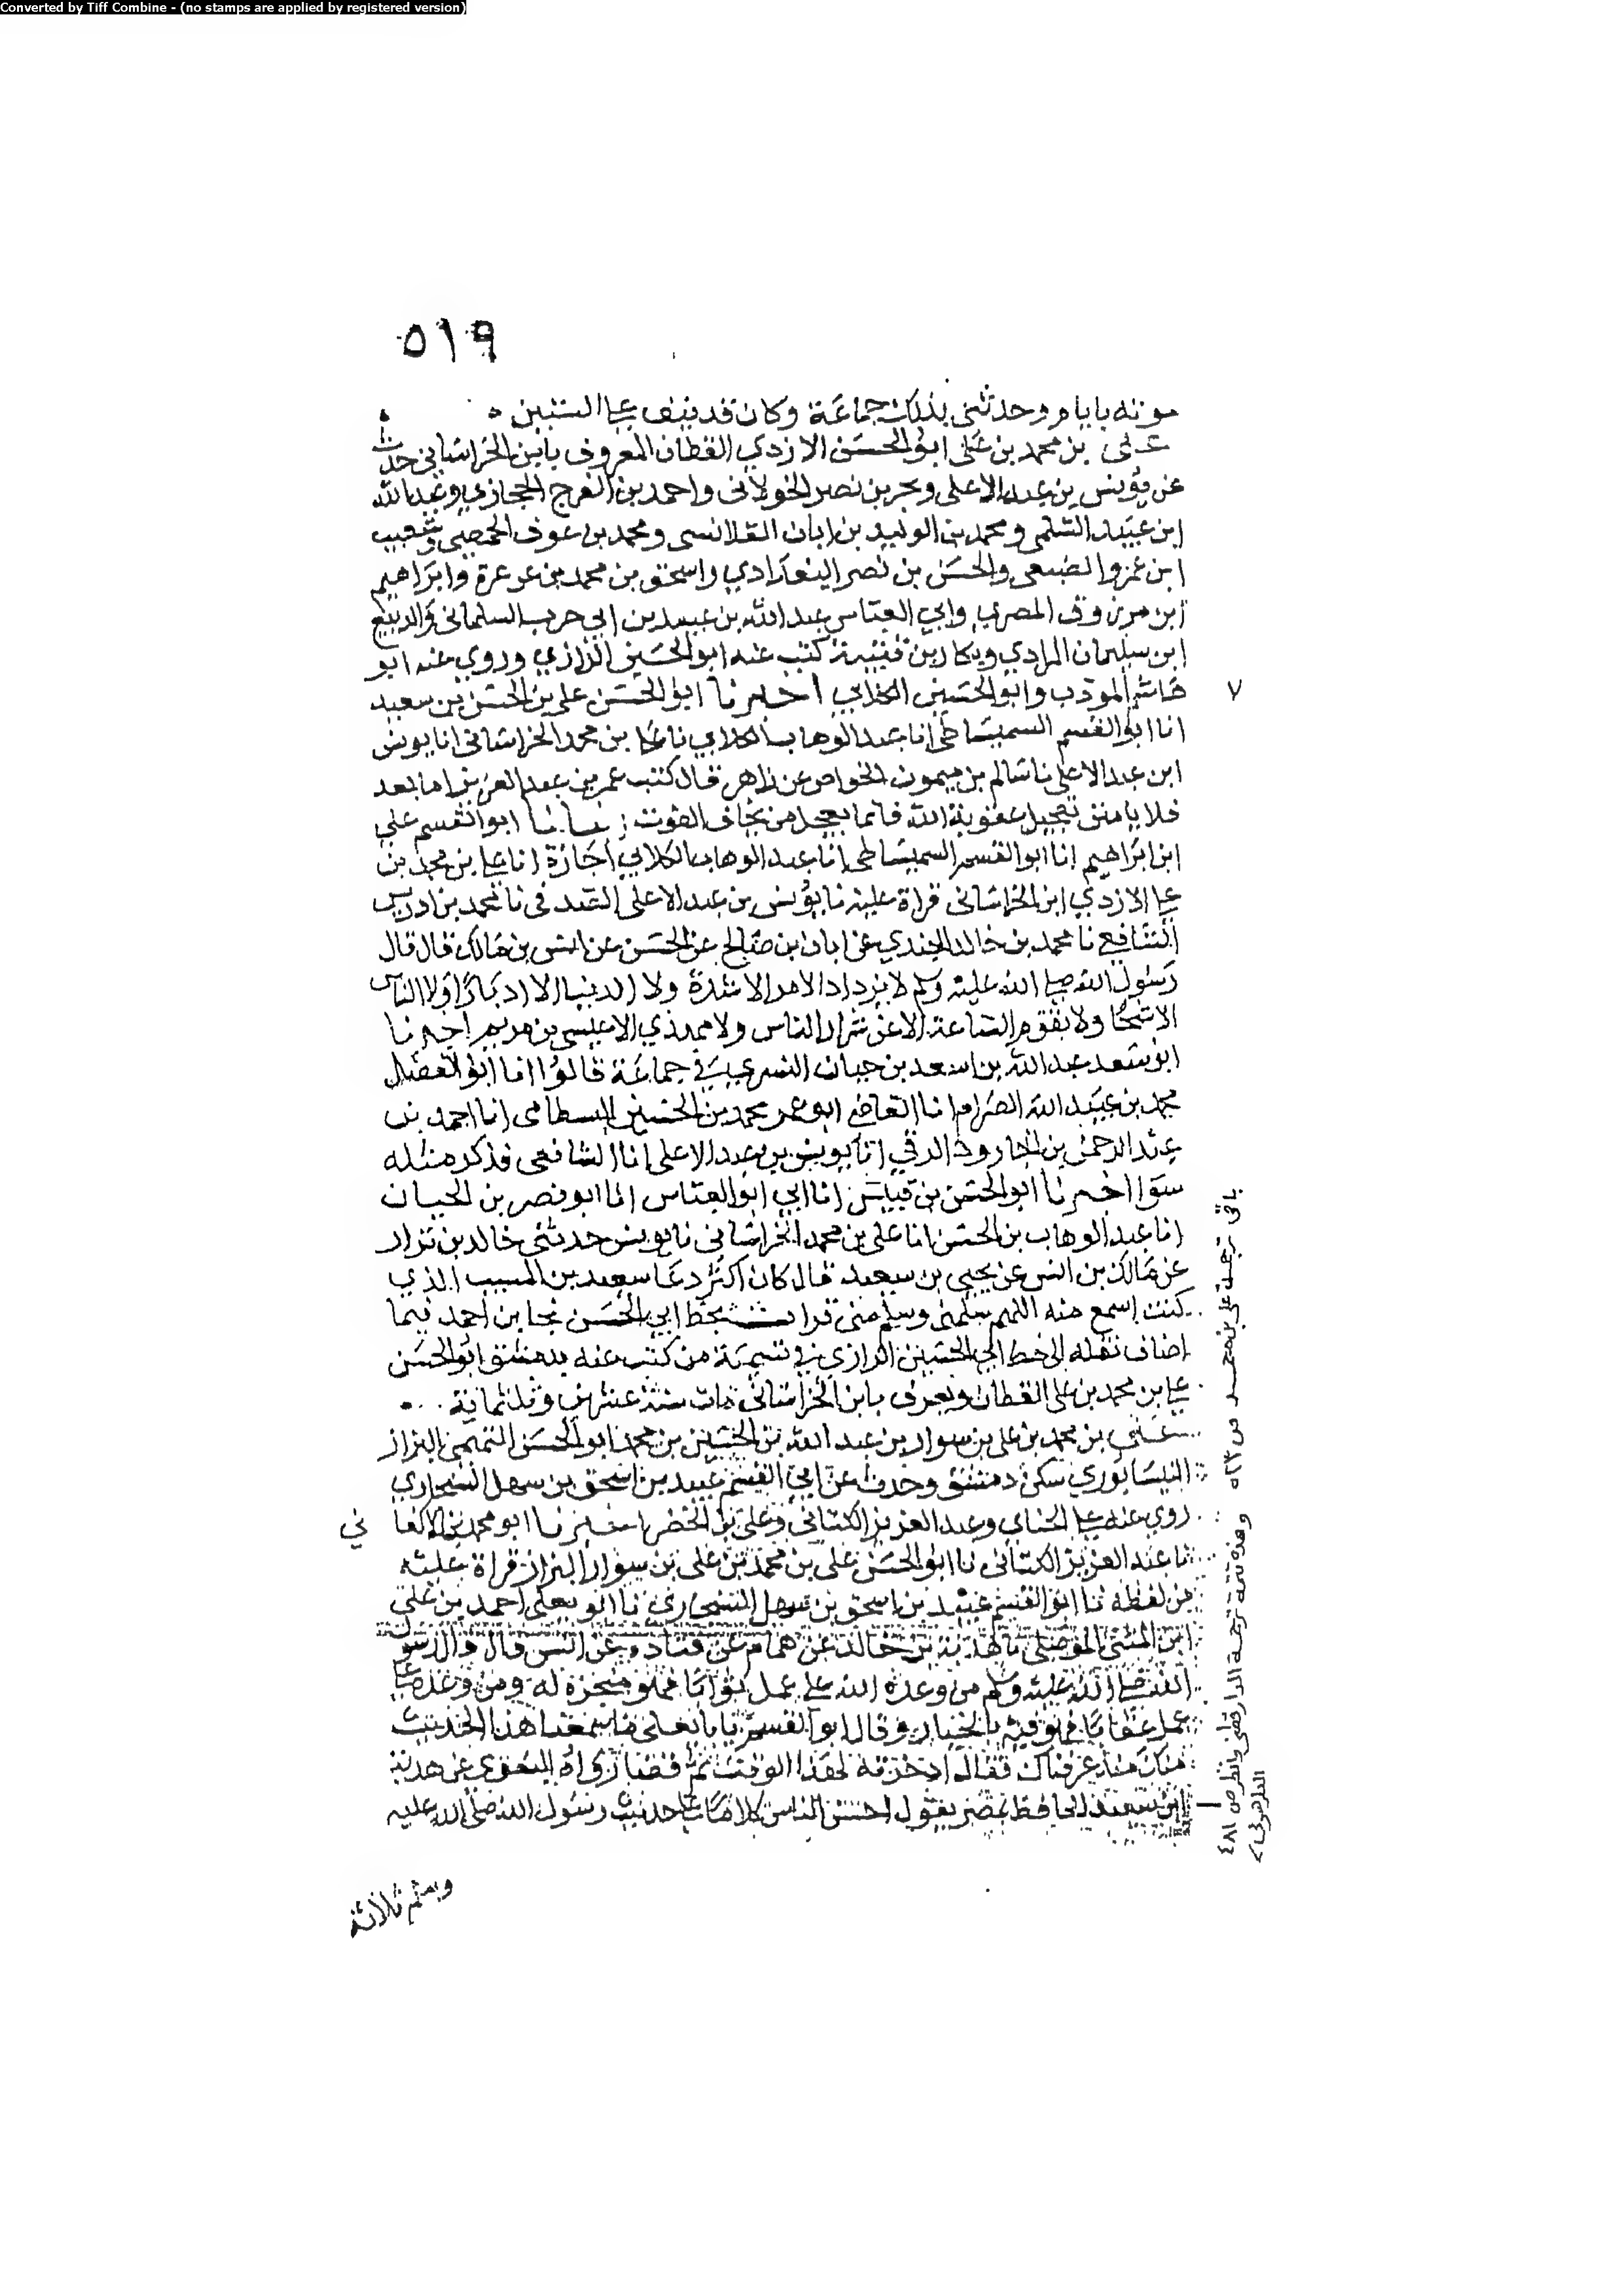 Converted by Tiff Combine - (no stamps are applied by registered version)
٥١٩
موته بايام وحدثني بذلك جماعة وكان قد نيف على الستين
علي بن محمد بن علي ابو الحسن الازدي القطان المعروف بابن الخراساني حدث
عن يونس بن عبد الاعلى وبحر بن نصر الخولاني واحمد بن الفرج الحجازي وعبد الله
ابن عبيد السلمي ومحمد بن الوليد بن ابان القلانسي ومحمد بن عوف الحمصي وشعيب
ابن عمرو الضبعي والحسن بن نصر البغدادي واسحق بن محمد بن عرعرة وابراهيم
ابن مرزوق المصري وابي العباس عبد الله بن عبيد بن ابي حرب السلماني والربيع
ابن سليمان المرادي وبكار بن قتيبة كتب عنه ابو الحسين الرازي وروي عنه ابو
هاشم المودب وابو الحسين الكلابي اخبرنا ابو الحسن علي بن الحسن بن سعيد
٧
انا ابو القسم السميساطي انا عبد الوهاب الكلابي نا علي بن محمد الخراساني انا يونس
ابن عبد الاعلى نا سالم بن ميمون الخواص عن زاهر قال كتب عمر بن عبد العزيز اما بعد
فلا يامنن تعجيل عقوبة الله فانما يعجل من يخاف الفوت انبانا ابو القسم علي
ابن ابراهيم انا ابو القسم السميساطي انا عبد الوهاب الكلابي اجازة انا علي بن محمد بن
علي الازدي ابن الخراساني قراة عليه نا يونس بن عبد الاعلى الصدفي نا محمد بن ادريس
الشافعي نا محمد بن خالد الجندي عن ابان بن صالح عن الحسن عن انس بن مالك قال قال
رسول الله صلى الله عليه وسلم لا يزداد الامر الا شدة ولا الدنيا الا ادبارا ولا الناس
الا شحا ولا تقوم الساعة الا على شرار الناس ولا مهدي الا عيسى بن مريم اخبرنا
ابو سعد عبد الله بن اسعد بن حيان النسوي في جماعة قالوا انا ابو الفضل
محمد بن عبيد الله الصرام انا القاضي ابو عمر محمد بن الحسين البسطامي انا احمد بن
عبد الرحمن بن الجارود الرقي انا يونس بن عبد الاعلى انا الشافعي فذكر مثله
سوا اخبرنا ابو الحسن بن قبيس انا ابي ابو العباس انا ابو نصر بن الحبان
انا عبد الوهاب بن الحسن انا علي بن محمد الخراساني نا يونس حدثني خالد بن نزار
عن مالك بن انس عن يحيى بن سعيد قال كان اكثر دعا سعيد بن المسيب الذي
كنت اسمع منه اللهم سلمني وسلم مني قرات بخط ابي الحسن نجا بن احمد فيما
اضاف نقله الى خط ابي الحسين الرازي في تسمية من كتب عنه بدمشق ابو الحسن
علي بن محمد بن علي القطان ويعرف بابن الخراساني مات سنة عشرين وثلثماية
علي بن محمد بن علي بن سوار بن عبد الله بن الحسين بن محمد ابو الحسن التميمي البزاز
النيسابوري سكن دمشق وحدث عن ابي القسم عبيد بن اسحق بن سهل السنجاري
روي عنه علي الحناي وعبد العزيز الكتاني وعلي بن الخضر اخبرنا ابو محمد بن الاكفا ني
نا عبد العزيز الكتاني نا ابو الحسن علي بن محمد بن علي بن سوار البزاز قراة عليه
من لفظه نا ابو القسم عبيد بن اسحق بن سهل السنجاري نا ابو يعلى احمد بن علي
ابن المثنى الموصلي نا هدبة بن خالد عن همام عن قتادة عن انس قال قال رسول
الله صلى الله عليه وسلم من وعده الله على عمل ثوابا فهو منجزه له ومن وعده على
عمل عقابا فهو فيه بالخيار وقال ابو القسم يا ابا يعلى ما سمعنا هذا الحديث
منك منذ عرفناك فقال ادخرته لهذا الوقت ثم قضا رواه البغوي عن هدبة
ابن سعيد الحافظ بمصر يقول احسن الناس كلاما على حديث رسول الله صلى الله عليه
وسلم ثلاثة
باقي ترجمة علي بن محمد ص ٥٢٣
وهذه تتمة ترجمة الدارقطني وانظر ص ٤٨١